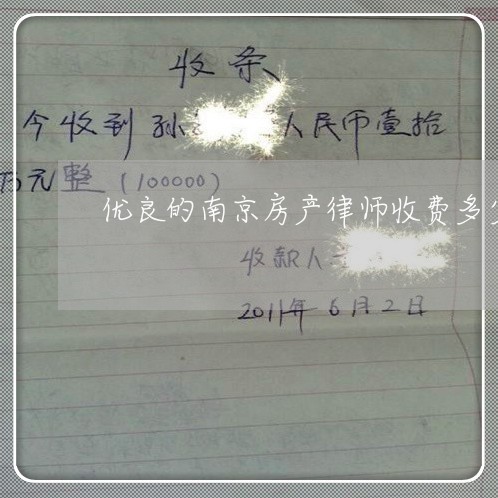 收条
今收到孙 人民币壹拾
万元整(100000)
优良的南京房产律师收费多
收款人
2011年6月2日